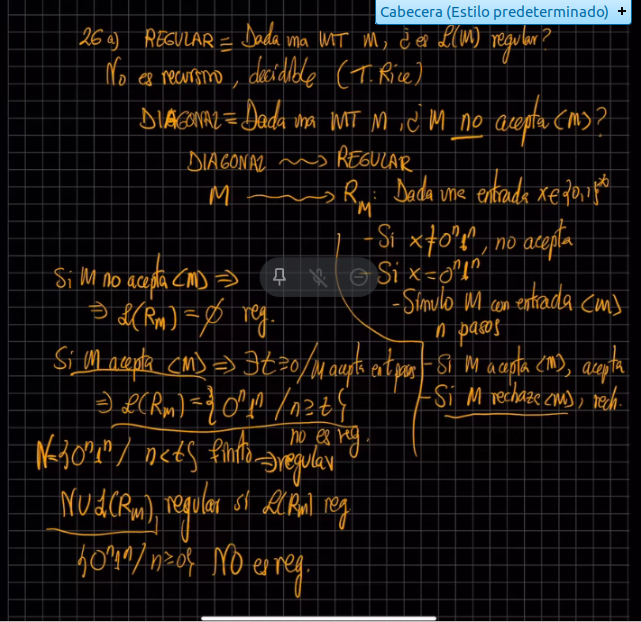 Cabecera (Estilo predeterminado) +
26 a) REGULAR ≡ Dada una MT M, ¿es L(M) regular?
No es recursivo, decidible (T. Rice)
DIAGONAL ≡ Dada una MT M, ¿M no acepta ⟨M⟩?
DIAGONAL ⇝ REGULAR
M → R_M: Dada una entrada x∈{0,1}*
- Si x≠0ⁿ1ⁿ, no acepta
- Si x=0ⁿ1ⁿ
- Simulo M con entrada ⟨M⟩
n pasos
- Si M acepta ⟨M⟩, acepta
- Si M rechaza ⟨M⟩, rech.
Si M no acepta ⟨M⟩ ⇒
⇒ L(R_M) = ∅ reg.
Si M acepta ⟨M⟩ ⇒ ∃t≥0 / M acepta en t pasos
⇒ L(R_M) = {0ⁿ1ⁿ / n≥t}
no es reg.
N={0ⁿ1ⁿ / n<t} finito ⇒ regular
N∪L(R_M), regular si L(R_M) reg
{0ⁿ1ⁿ / n≥0} NO es reg.